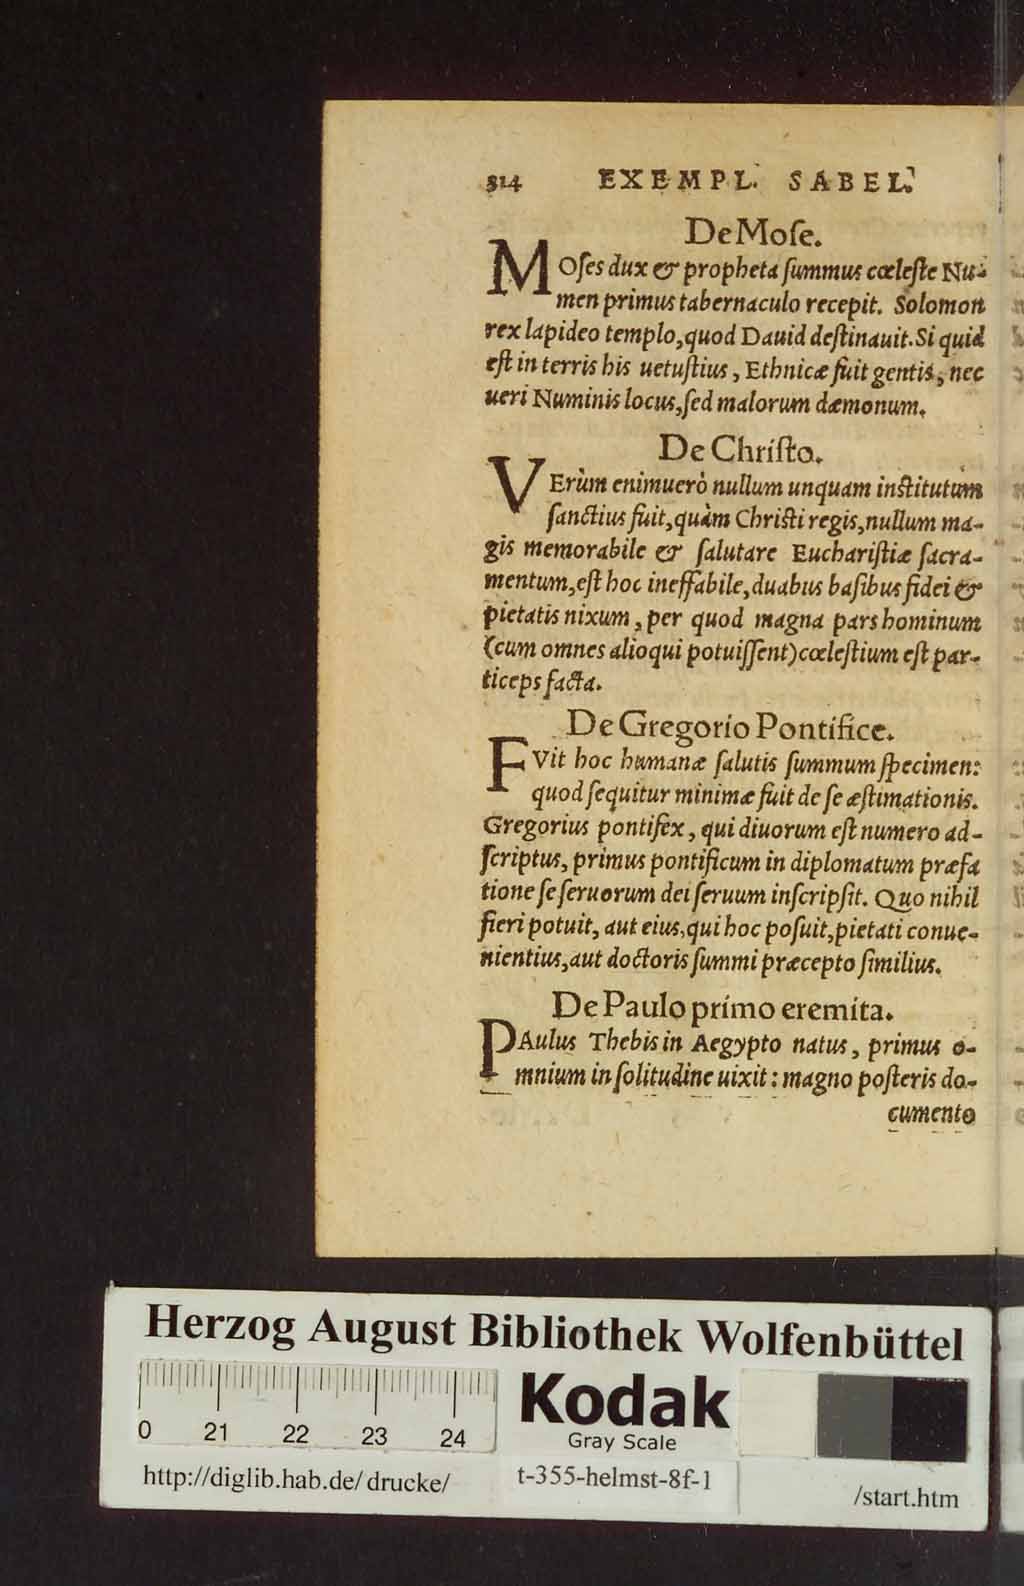 314 EXEMPL. SABEL.
De Moſe.
MOſes dux & propheta ſummus cœleſte Nu-
men primus tabernaculo recepit. Solomon
rex lapideo templo, quod Dauid deſtinauit. Si quid
eſt in terris his uetuſtius, Ethnicæ fuit gentis, nec
ueri Numinis locus, ſed malorum dæmonum.
De Chriſto.
VErùm enimuerò nullum unquam inſtitutum
ſanctius fuit, quàm Chriſti regis, nullum ma-
gis memorabile & ſalutare Euchariſtiæ ſacra-
mentum, eſt hoc ineffabile, duabus baſibus fidei &
pietatis nixum, per quod magna pars hominum
(cum omnes alioqui potuiſſent) cœleſtium eſt par-
ticeps facta.
De Gregorio Pontifice.
FVit hoc humanæ ſalutis ſummum ſpecimen:
quod ſequitur minimæ fuit de ſe æſtimationis.
Gregorius pontifex, qui diuorum eſt numero ad-
ſcriptus, primus pontificum in diplomatum præfa
tione ſe ſeruorum dei ſeruum inſcripſit. Quo nihil
fieri potuit, aut eius, qui hoc poſuit, pietati conue-
nientius, aut doctoris ſummi præcepto ſimilius.
De Paulo primo eremita.
PAulus Thebis in Aegypto natus, primus o-
mnium in ſolitudine uixit: magno poſteris do-
cumento
Herzog August Bibliothek Wolfenbüttel
0 21 22 23 24
Kodak
Gray Scale
http://diglib.hab.de/drucke/ t-355-helmst-8f-1 /start.htm